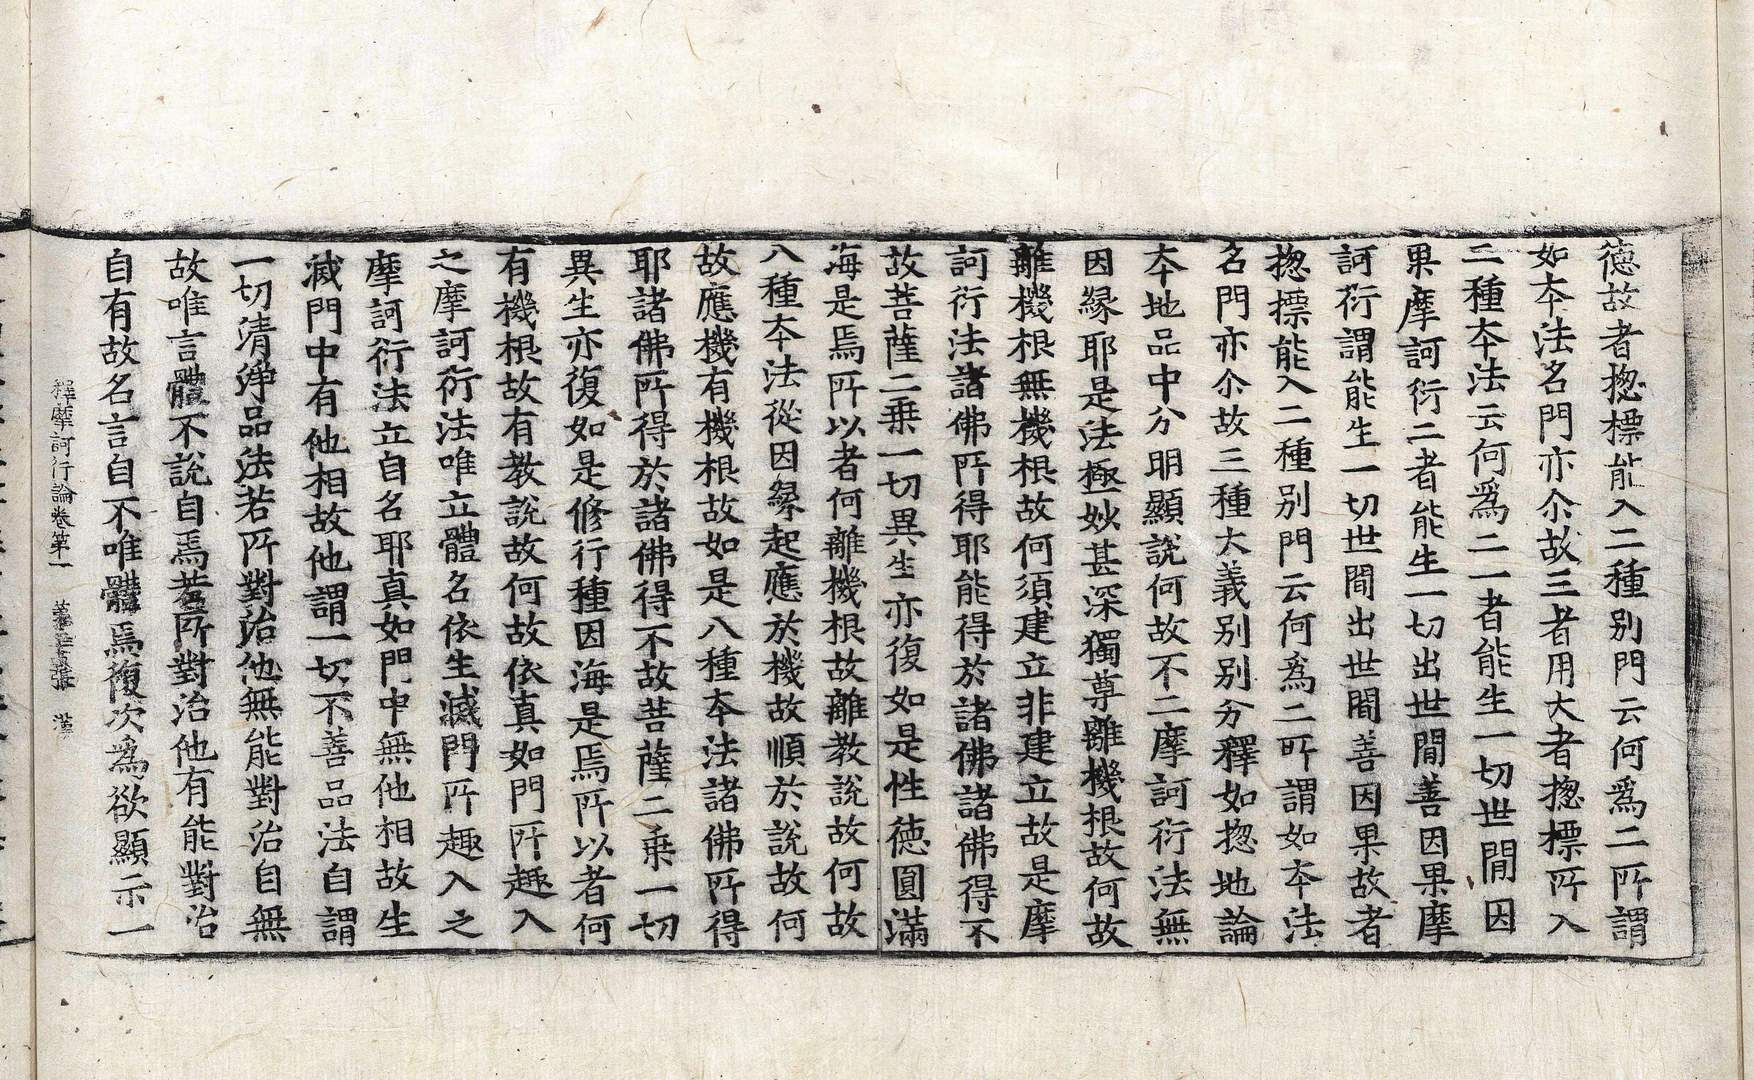 德故者揔摽能入二種別門云何爲二所謂
如本法名門亦尒故三者用大者揔摽所入
二種本法云何爲二一者能生一切世間因
果摩訶衍二者能生一切出世間善因果摩
訶衍謂能生一切世間出世間善因果故者
揔摽能入二種別門云何爲二所謂如本法
名門亦尒故三種大義別別分釋如揔地論
本地品中分明顯說何故不二摩訶衍法無
因緣耶是法極妙甚深獨尊離機根故何故
離機根無機根故何須建立非建立故是摩
訶衍法諸佛所得耶能得於諸佛諸佛得不
故菩薩二乗一切異生亦復如是性德圓滿
海是焉所以者何離機根故離教說故何故
八種本法從因緣起應於機故順於說故何
故應機有機根故如是八種本法諸佛所得
耶諸佛所得於諸佛得不故菩薩二乗一切
異生亦復如是修行種因海是焉所以者何
有機根故有教說故何故依真如門所趣入
之摩訶衍法唯立體名依生滅門所趣入之
摩訶衍法立自名耶真如門中無他相故生
滅門中有他相故他謂一切不善品法自謂
一切清淨品法若所對治他無能對治自無
故唯言體不說自焉若所對治他有能對治
自有故名言自不唯體焉復次爲欲顯示一
釋摩訶衍論卷第一 張 漢